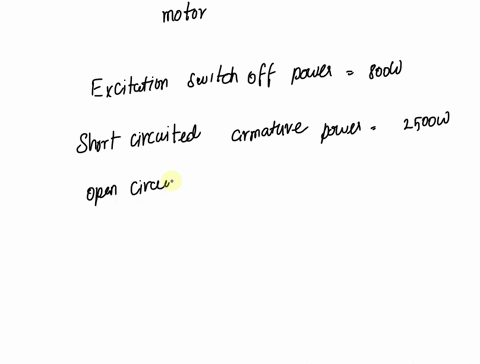 motor
Excitation switch off power = 800W
Short circuited armature power = 2500W
open circui